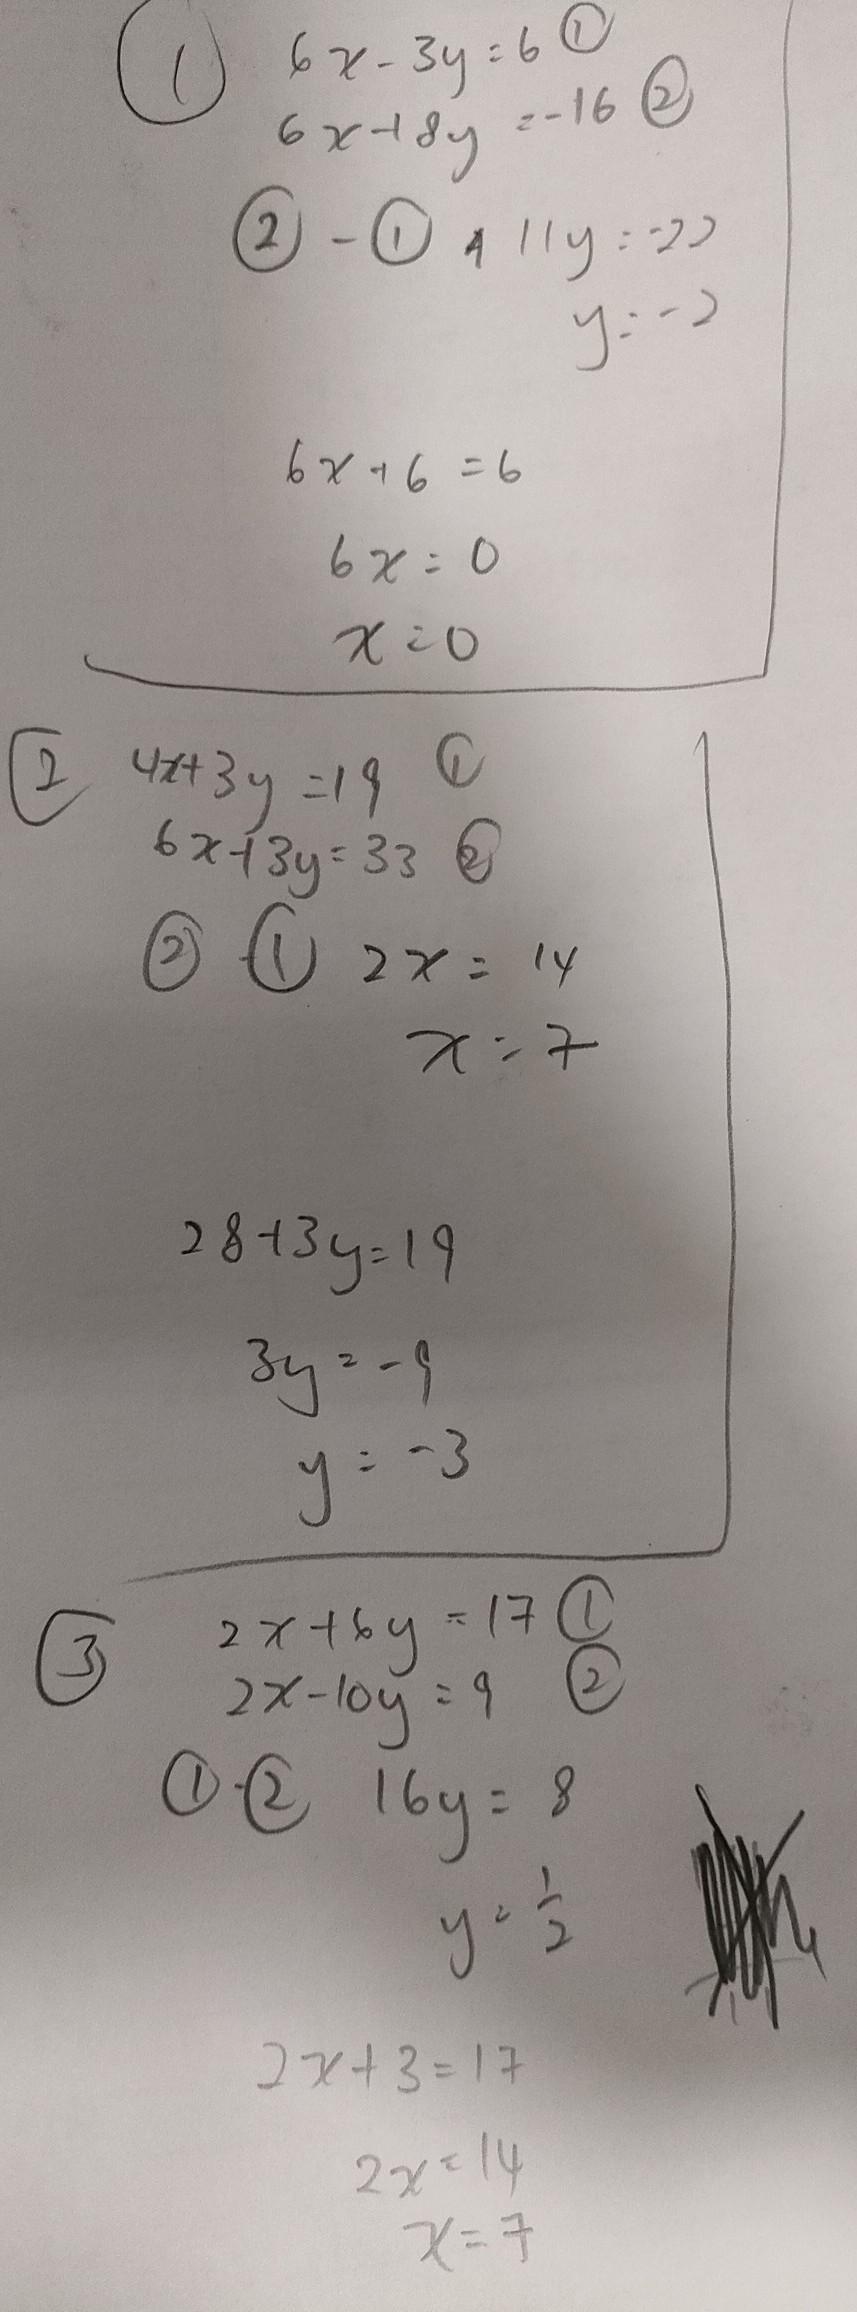 ① 6x - 3y = 6 ①
6x + 8y = -16 ②
② - ① 11y = -22
y = -2
6x + 6 = 6
6x = 0
x = 0
② 4x + 3y = 19 ①
6x + 3y = 33 ②
② - ① 2x = 14
x = 7
28 + 3y = 19
3y = -9
y = -3
③ 2x + 6y = 17 ①
2x - 10y = 9 ②
① - ② 16y = 8
y = 1/2
2x + 3 = 17
2x = 14
x = 7